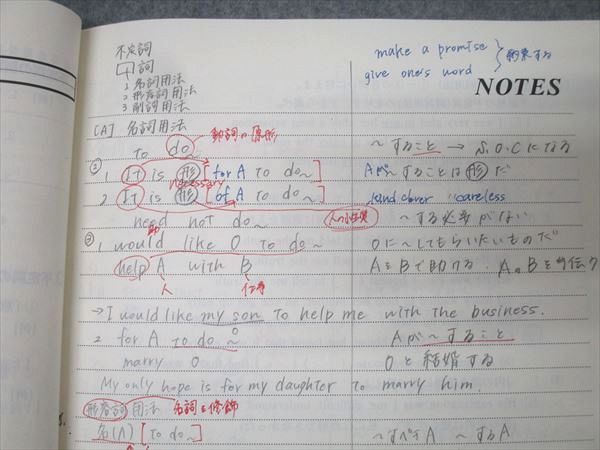 不定詞
句詞
1 名詞用法
2 形容詞用法
3 副詞用法
make a promise
give one's word
約束する
NOTES
[A] 名詞用法
動詞の原形
to do~
~すること → S.O.Cになる
② 1 It is 形 [for A to do~]
Aが~することは形だ
necessary
2 It is 形 [of A to do~]
kind clever careless
人の性質
need not do~
~する必要がない
③ 1 would like O to do~
Oに~してもらいたいものだ
help A with B
AをBで助ける. AのBを手伝う
人
仕事
→ I would like my son to help me with the business.
2 for A to do~
Aが~すること
marry O
Oと結婚する
My only hope is for my daughter to marry him.
形容詞用法 名詞を修飾
名(A) [to do~]
~すべきA ~するA